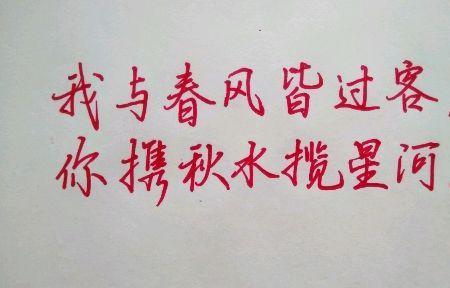 我与春风皆过客,
你携秋水揽星河